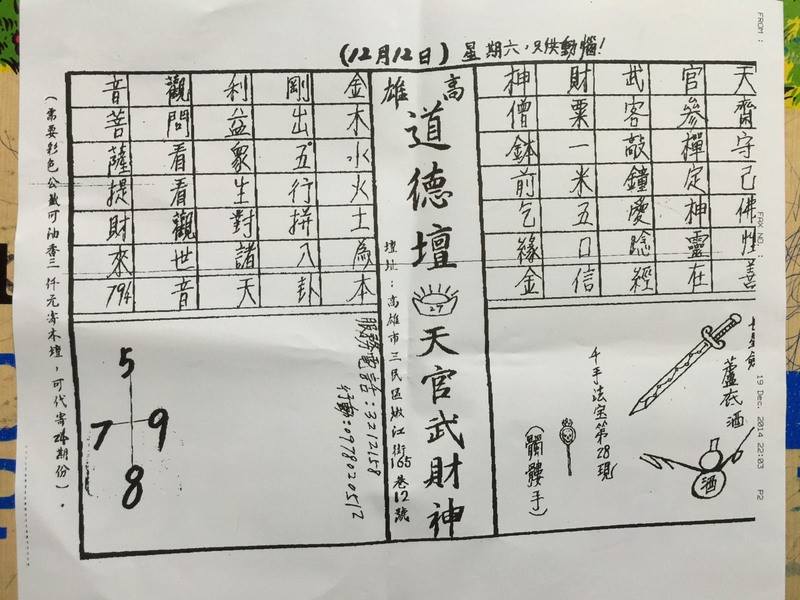 (12月12日)星期六,只供動惱!
天齋守己佛性善
官參禪定神靈在
武客敲鐘愛唸經
財粟一米五口信
神僧鉢前乞緣金
高雄
道德壇
27
天官武財神
壇址:高雄市三民區嫩江街165巷12號
金木水火土為本
剛出五行拼八卦
利益眾生對諸天
觀問看看觀世音
音菩薩提財來794
服務電話:3212158
行動:0978020512
5
7
9
8
蘆花酒
酒
千手法宝第28現
(髑髏手)
(需要彩色公載可油香三仟元寄本壇,可代寄24期份)。
FROM :
FAX NO. :
19 Dec. 2014 22:03 P2